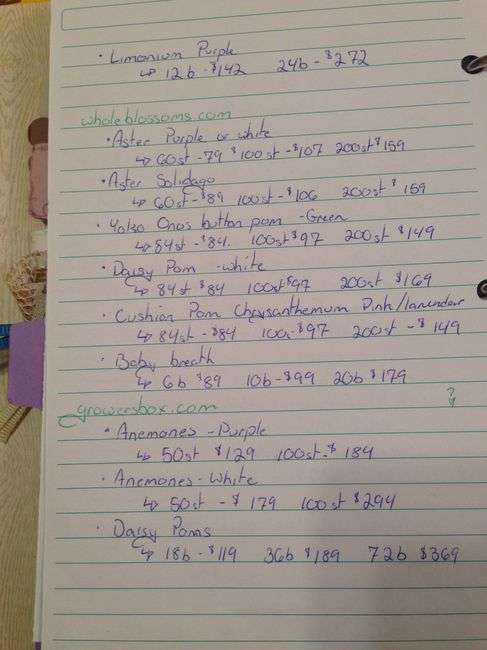 • Limonium Purple
↳ 12b - $142 24b - $272
wholeblossoms.com
• Aster Purple or white
↳ 60st - 79 $ 100st - $107 200st $159
• Aster Solidago
↳ 60st - $89 100st - $106 200st $159
• Yoko Onos button pom - Green
↳ 84st - $84. 100st $97 200st $149
• Daisy Pom - white
↳ 84st $84 100st $97 200st $169
• Cushion Pom Chrysanthemum Pink/lavendar
↳ 84st - $84 100 - $97 200st - $149
• Baby breath
↳ 6b $89 10b - $99 20b $179
growersbox.com ?
• Anemones - Purple
↳ 50st $129 100st - $184
• Anemones - White
↳ 50st - $179 100st $294
• Daisy Poms
↳ 18b - $119 36b $189 72b $369